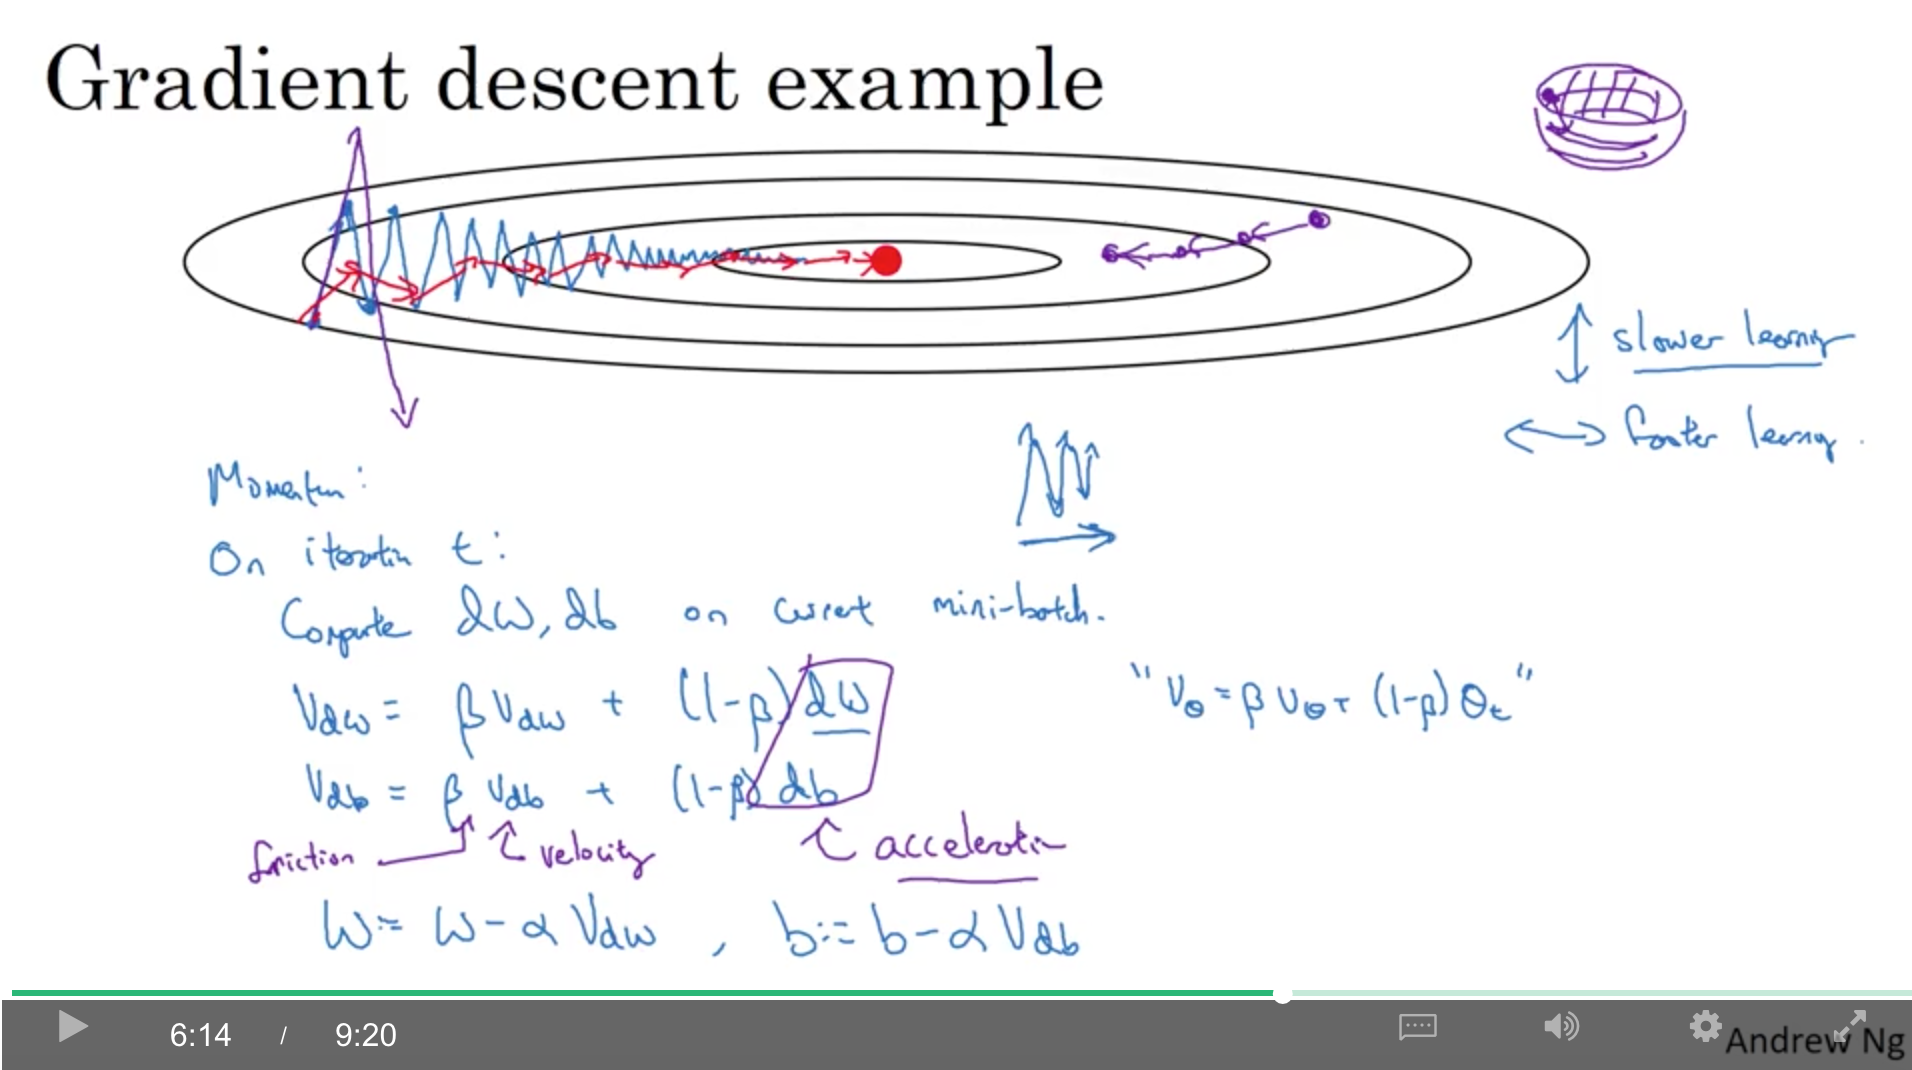 Gradient descent example
slower learning
faster learning.
Momentum:
On iteration t:
Compute dW, db on current mini-batch.
Vdw = βVdw + (1-β)dW
"Vθ = βVθ + (1-β)θt"
Vdb = βVdb + (1-β)db
friction velocity acceleration
W := W - αVdw , b := b - αVdb
6:14 / 9:20
Andrew Ng